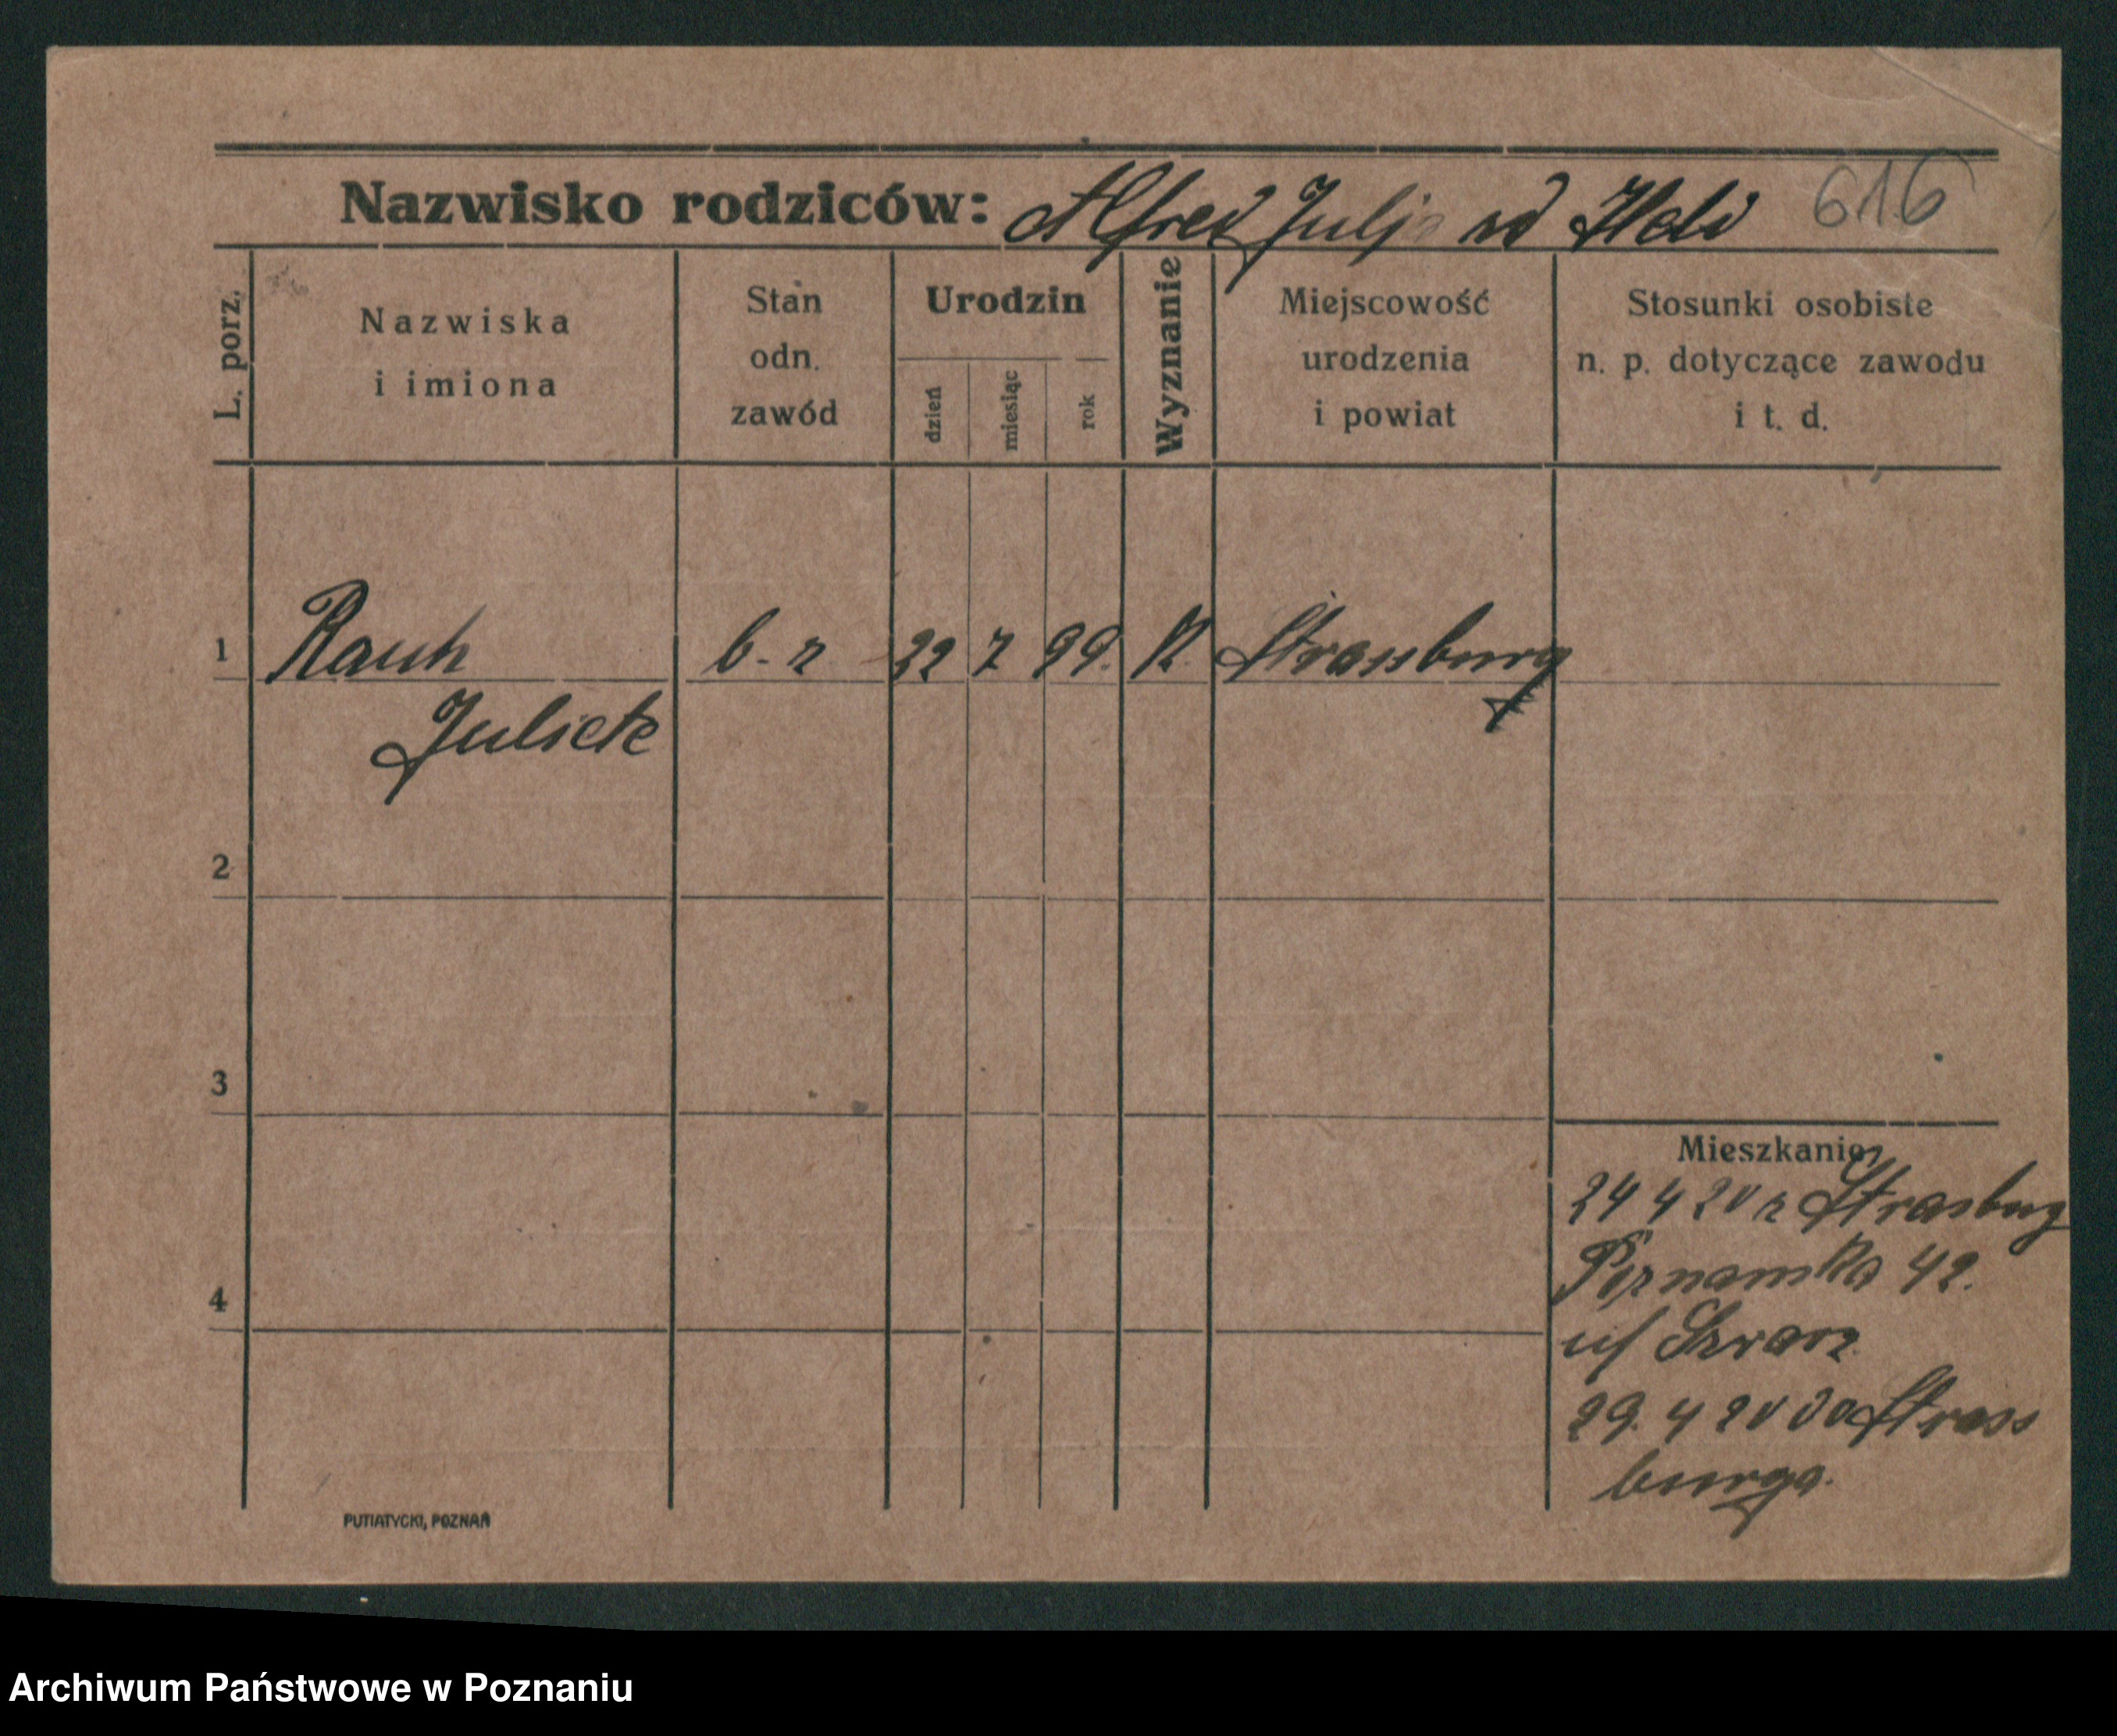 Nazwisko rodziców: Alfred Julj 616
L. porz.
Nazwiska
i imiona
Stan
odn.
zawód
Urodzin
dzień
miesiąc
rok
Wyznanie
Miejscowość
urodzenia
i powiat
Stosunki osobiste
n. p. dotyczące zawodu
i t. d.
1 Rauh b. z 22 7 99. K. Strassburg
Juliete
2
3
4
Mieszkanie
24 4 20 z Strasburg
Poznanska 42.
u/ Szwarz
29. 4 20 do Strass
burga.
PUTIATYCKI, POZNAŃ
Archiwum Państwowe w Poznaniu